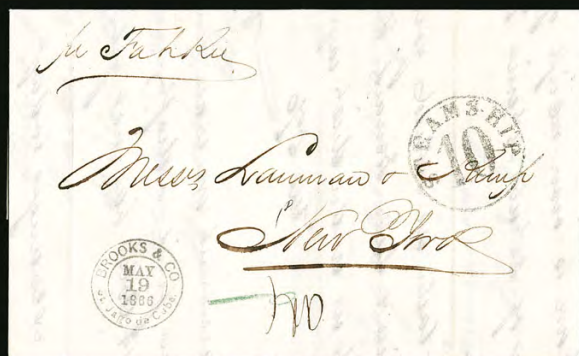 pr Fah Kee
STEAMSHIP
10
Messrs Lanman & Kemp
New York
BROOKS & CO
MAY
19
1866
St. Jago de Cuba.